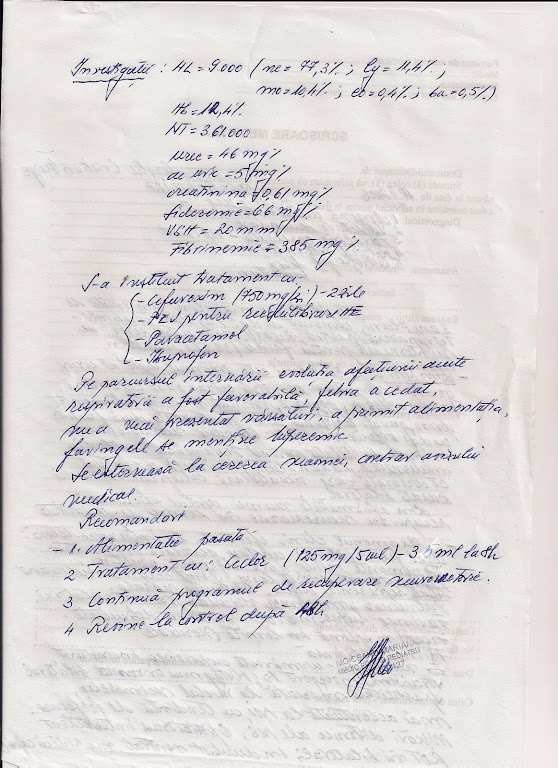 Investigații : HL = 9.000 ( ne = 77,3% ; ly = 11,4% ;
mo = 10,4% ; eo = 0,4% ; ba = 0,5%)
Hb = 12,4%
NT = 361.000
uree = 46 mg%
ac uric = 5 mg%
creatinina = 0,61 mg%
sideremie = 66 mg%
VSH = 20 mm
Fibrinemie = 385 mg%
S-a instituit tratament cu:
- Cefuroxim (750mg/zi) - 2 zile
- PEV pentru reechilibrare HE
- Paracetamol
- Ibuprofen
Pe parcursul internării evoluția afecțiunii acute
respiratorii a fost favorabilă, febra a cedat,
nu a mai prezentat vărsături, a primit alimentația,
faringele se menține hiperemic
Se externează la cererea mamei, contrar avizului
medical.
Recomandări
- 1. Alimentatie pasată
2 Tratament cu: Ceclor (125mg/5ml) - 3,5 ml la 8h
3 Continuă programul de recuperare neuromotorie.
4 Revine la control după 48h